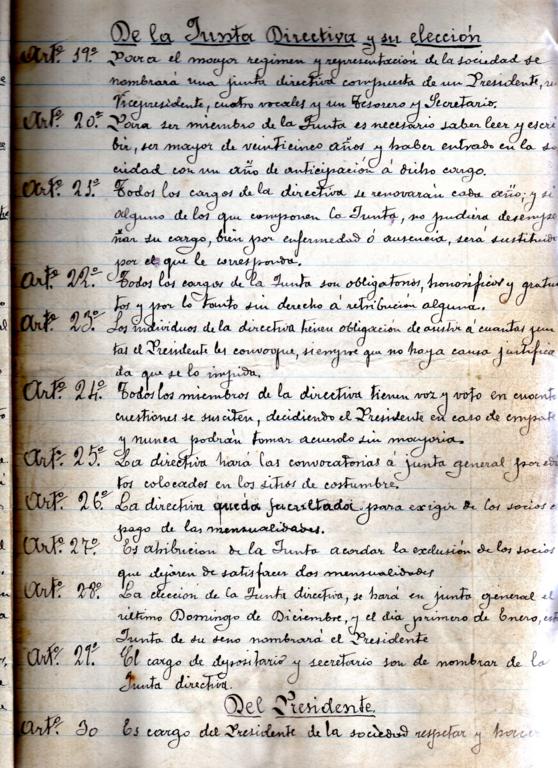 De la Junta Directiva y su elección
Artº. 19º Para el mayor regimen y representación de la sociedad se
nombrará una junta directiva compuesta de un Presidente,
Vicepresidente, cuatro vocales y un Tesorero y Secretario.
Artº. 20º Para ser miembro de la Junta es necesario saber leer y escri
bir, ser mayor de veinticinco años y haber entrado en la so
ciedad con un año de anticipación á dicho cargo.
Artº. 21º Todos los cargos de la directiva se renovarán cada año; y si
alguno de los que componen la Junta, no pudiera desempe
ñar su cargo, bien por enfermedad ó ausencia, será sustituido
por el que le corresponda.
Artº. 22º Todos los cargos de la Junta son obligatorios, honoríficos y gratui
tos y por lo tanto sin derecho á retribución alguna.
Artº. 23º Los individuos de la directiva tienen obligación de asistir a cuantas jun
tas el Presidente les convoque, siempre que no haya causa justifica
da que se lo impida.
Artº. 24º Todos los miembros de la directiva tienen voz y voto en cuantas
cuestiones se susciten, decidiendo el Presidente en caso de empate
y nunca podrán tomar acuerdo sin mayoria.
Artº. 25º La directiva hará las convocatorias á junta general por edic
tos colocados en los sitios de costumbre.
Artº. 26º La directiva queda facultada para exigir de los socios e
pago de las mensualidades.
Artº. 27º Es atribucion de la Junta acordar la exclusión de los socios
que dejaren de satisfacer dos mensualidades
Artº. 28º La eleccion de la Junta directiva, se hará en junta general el
último Domingo de Diciembre, y el dia primero de Enero, esta
Junta de su seno nombrará el Presidente
Artº. 29º El cargo de depositario y secretario son de nombrar de la
Junta directiva.
Del Presidente.
Artº. 30 Es cargo del Presidente de la sociedad respetar y hacer